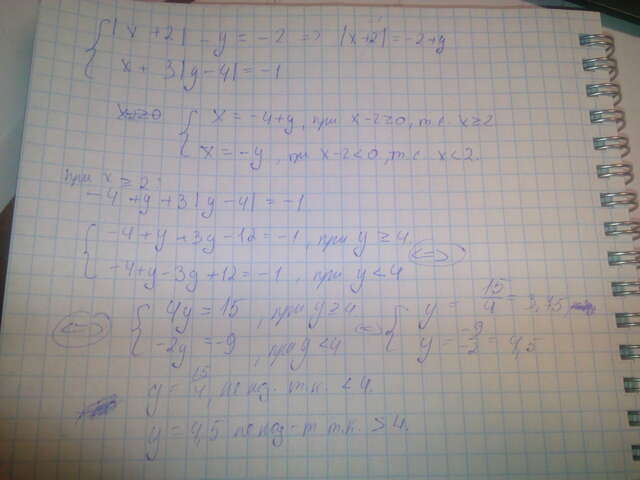 { |x + 2| - y = -2 => |x+2| = -2+y
x + 3|y - 4| = -1
x≥0 { x = -4+y, при x-2≥0, т.е. x≥2
x = -y, при x-2<0, т.е. x<2.
при x≥2:
-4+y+3|y-4| = -1
{ -4+y+3y-12 = -1, при y≥4
-4+y-3y+12 = -1, при y<4 <=>
<=> { 4y = 15, при y≥4 <=> { y = 15/4 = 3,75
-2y = -9, при y<4 y = -9/-2 = 4,5
y = 15/4, не под. т.к. <4.
y = 4,5 не под-т т.к. >4.